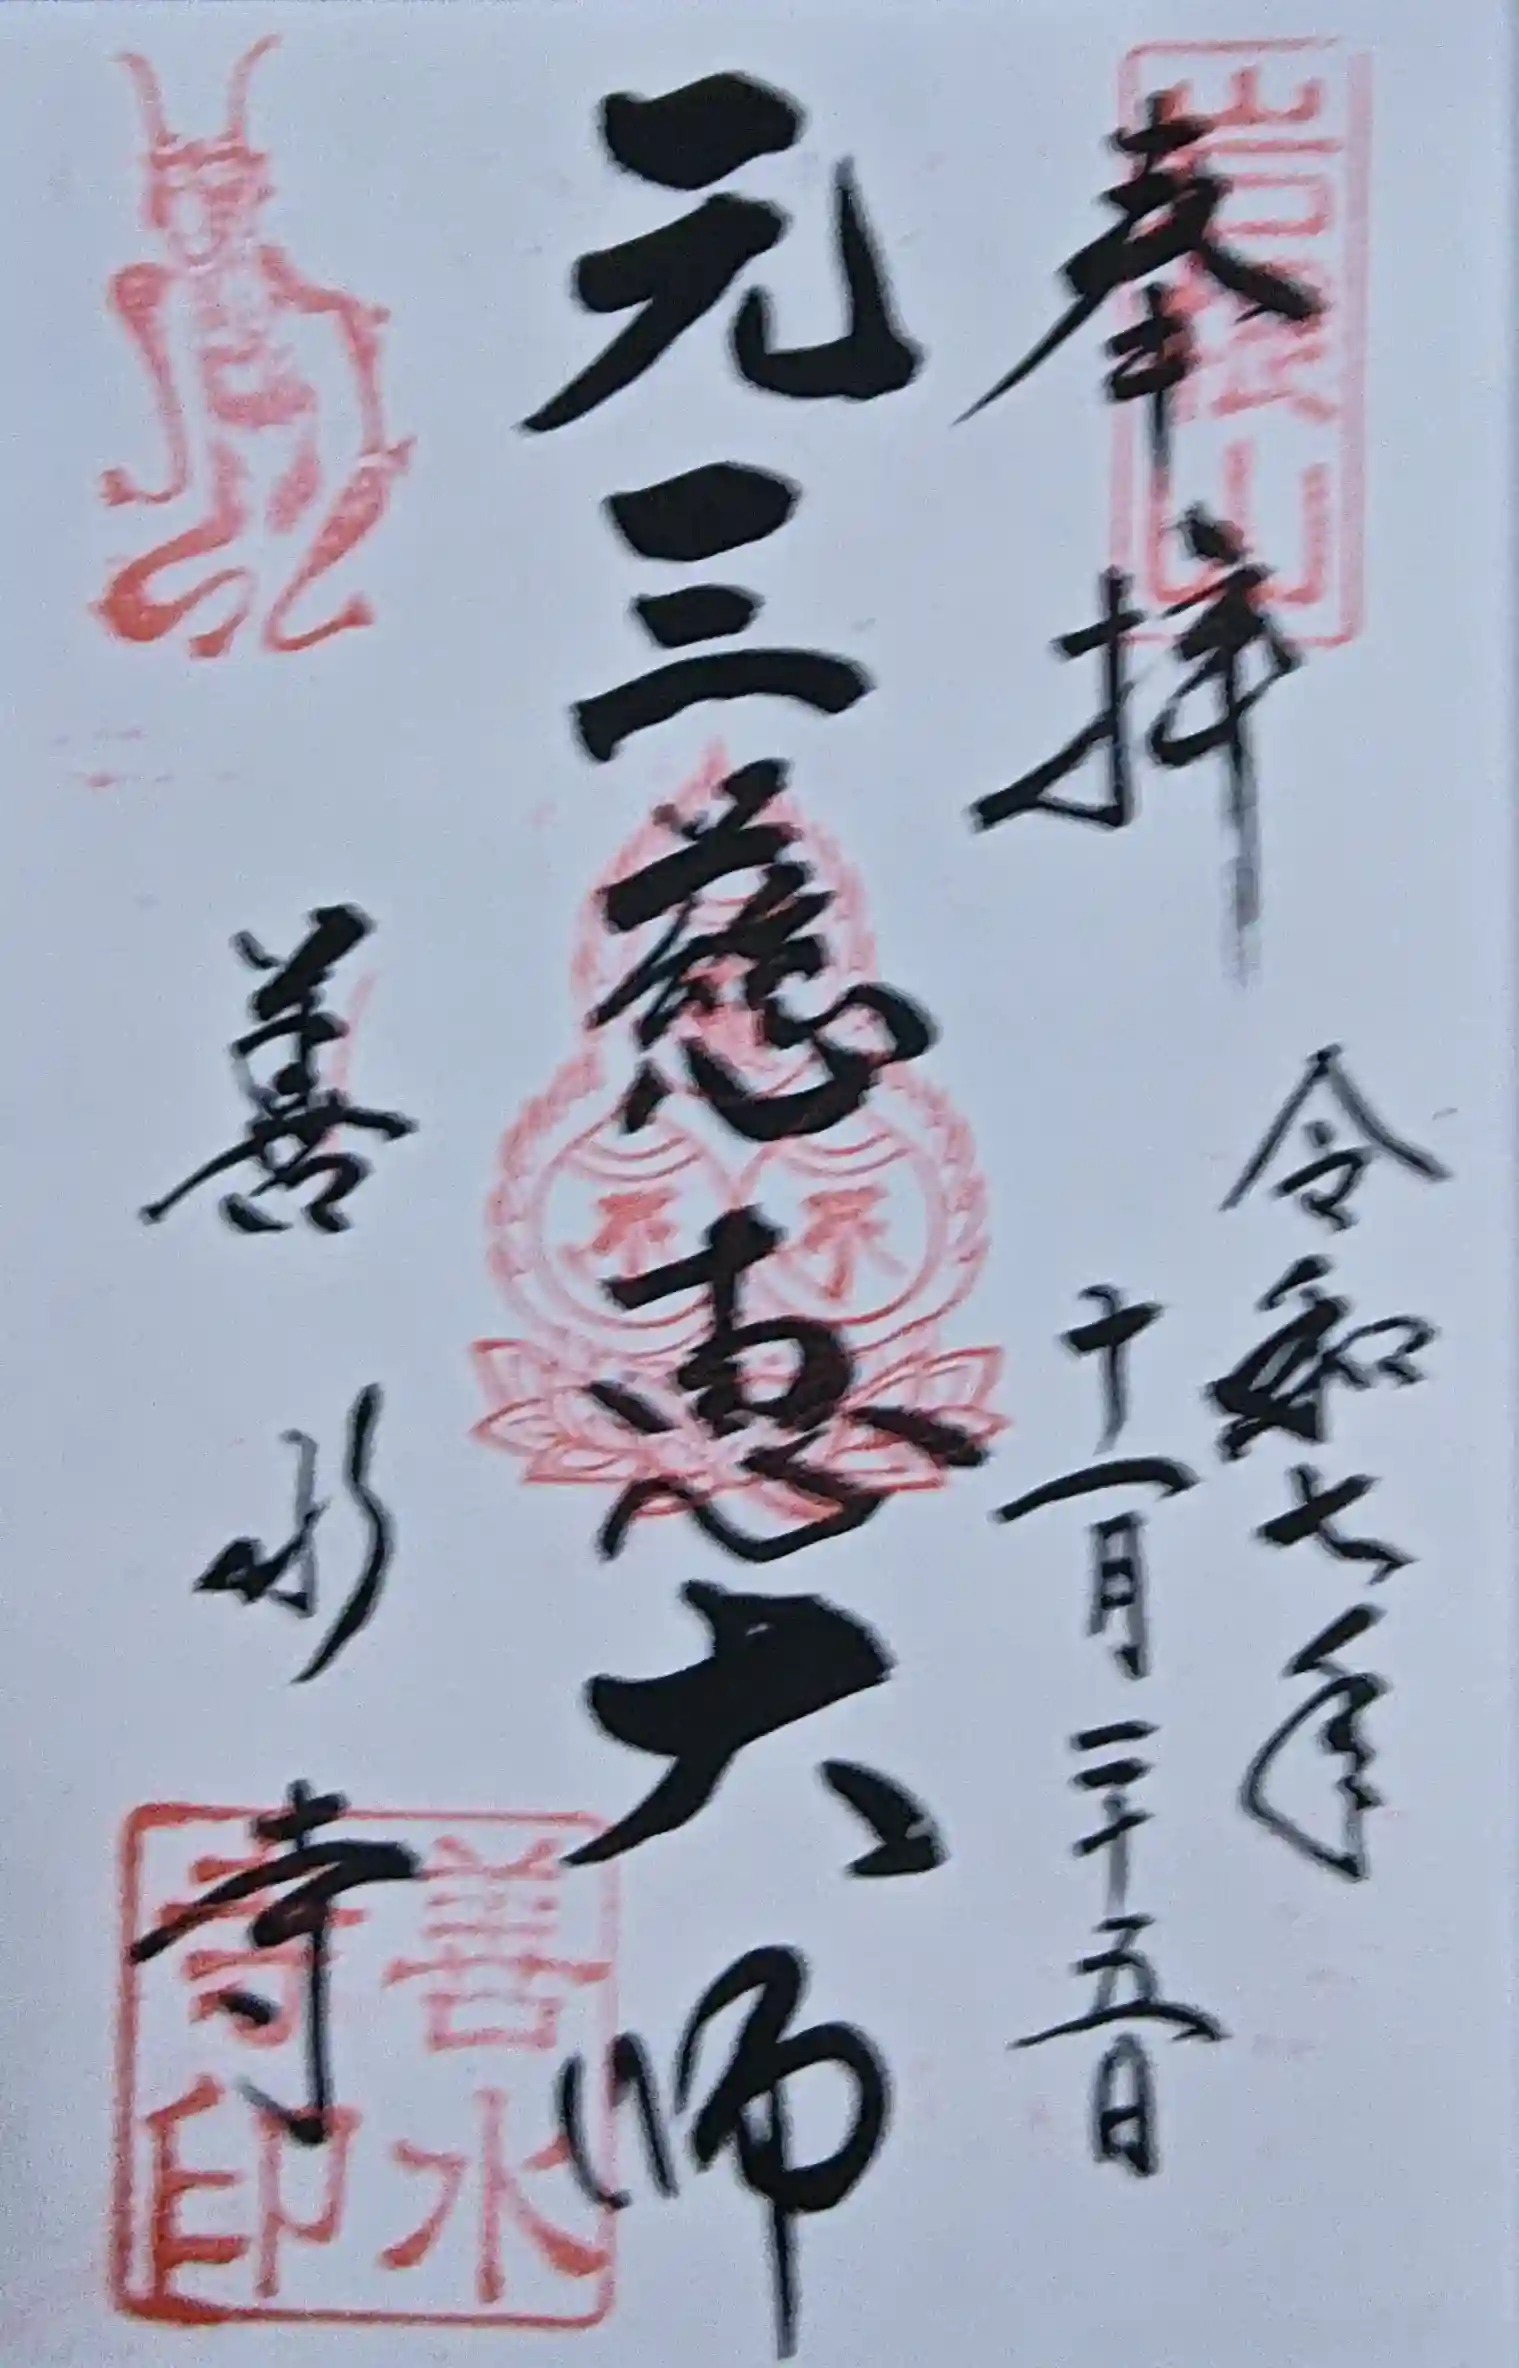 奉拝
令和七年
十一月二十五日
元三慈恵大師
善水寺
岩根山
善水寺印